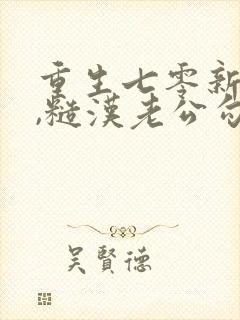 重生七零新
,糙漢老公勿
吳賢德